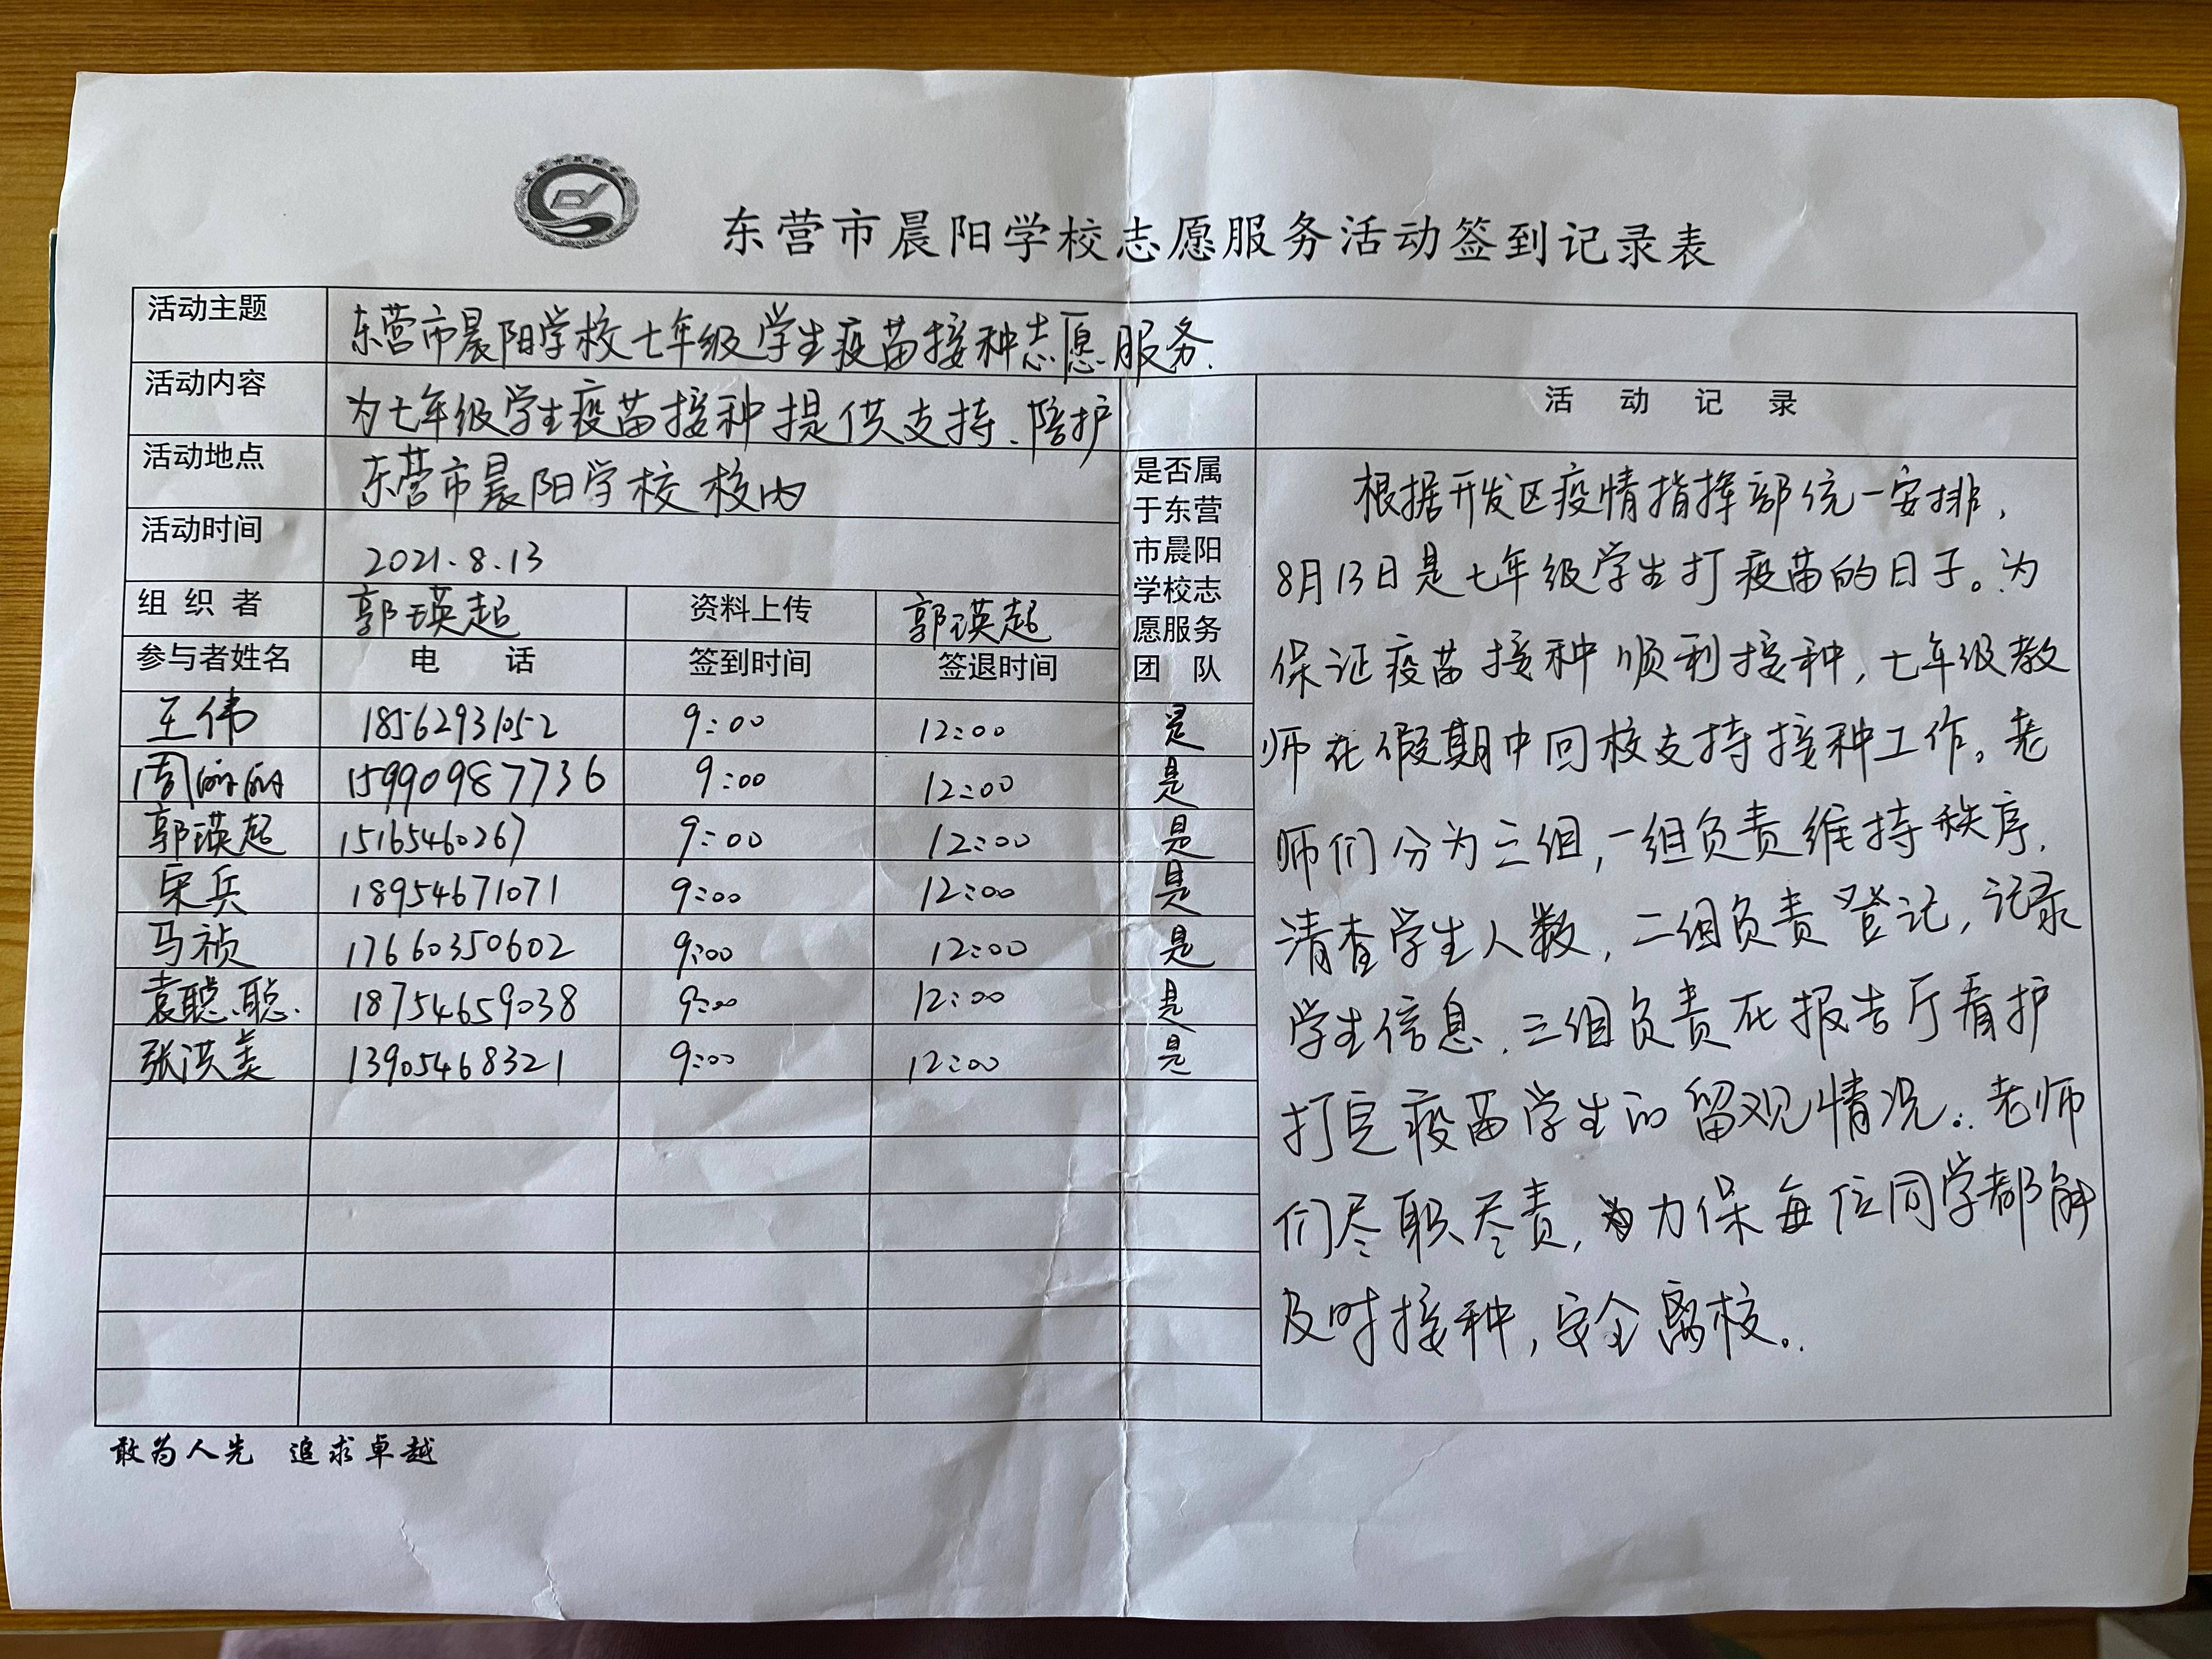 东营市晨阳学校志愿服务活动签到记录表
活动主题 东营市晨阳学校七年级学生疫苗接种志愿服务.
活动内容 为七年级学生疫苗接种提供支持、陪护
活动地点 东营市晨阳学校 校内
活动时间 2021.8.13
组 织 者 郭瑛起 资料上传 郭瑛起
参与者姓名 电 话 签到时间 签退时间
是否属
于东营
市晨阳
学校志
愿服务
团 队
王伟 18562931052 9:00 12:00 是
周 15990987736 9:00 12:00 是
郭瑛起 15165460267 9:00 12:00 是
宋兵 18954671071 9:00 12:00 是
马祯 17660350602 9:00 12:00 是
袁聪聪. 18754659038 9:00 12:00 是
张洪美 13905468321 9:00 12:00 是
活 动 记 录
根据开发区疫情指挥部统一安排,
8月13日是七年级学生打疫苗的日子。为
保证疫苗接种顺利接种,七年级教
师在假期中回校支持接种工作。老
师们分为三组,一组负责维持秩序.
清查学生人数,二组负责登记,记录
学生信息.三组负责在报告厅看护
打完疫苗学生的留观情况。老师
们尽职尽责,力保每位同学都能
及时接种,安全离校。
敢为人先 追求卓越